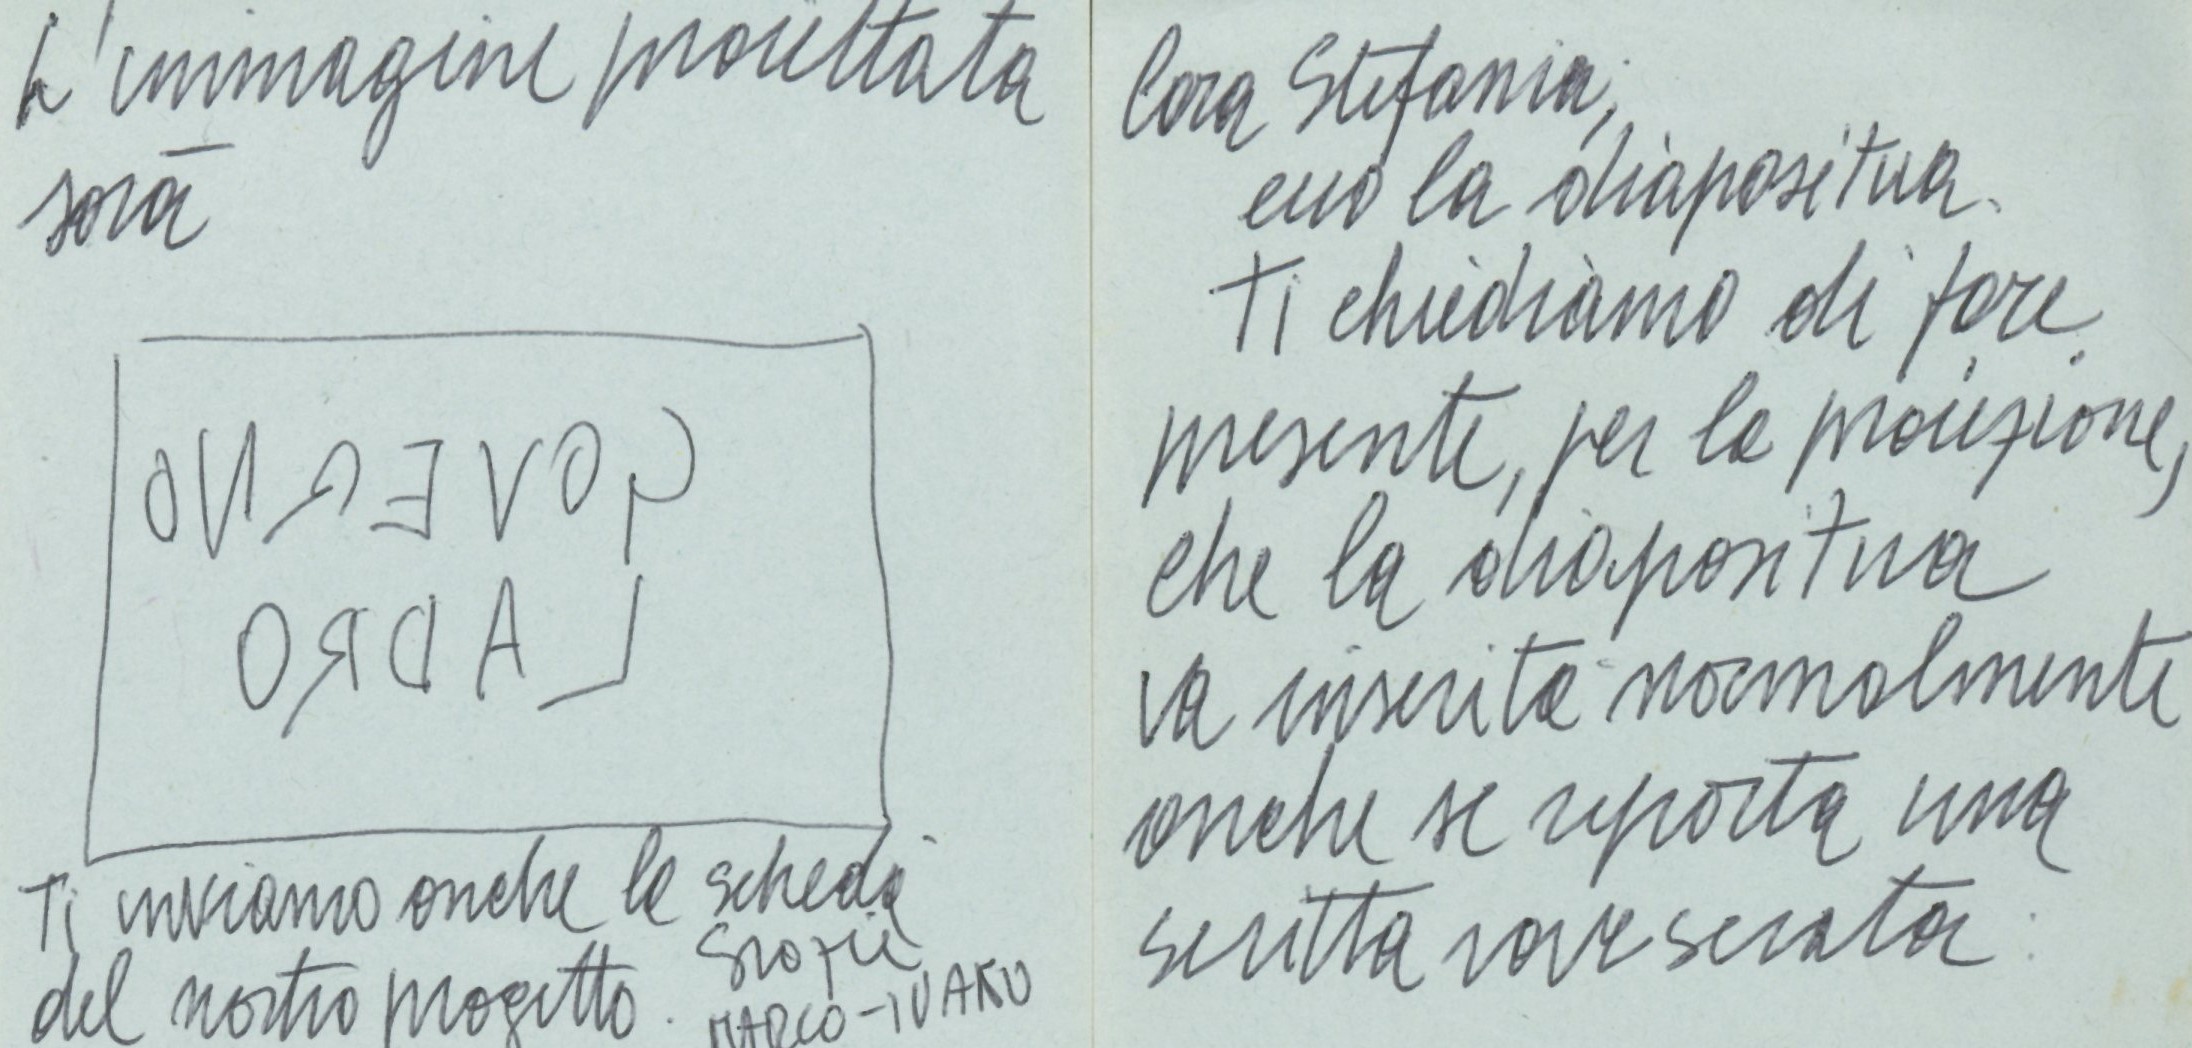 Cara Stefania,
ecco la diapositiva.
Ti chiediamo di fare
presente, per la proiezione,
che la diapositiva
va inserita normalmente
anche se riporta una
scritta rovesciata:
L'immagine proiettata
sarà
GOVERNO
LADRO
Ti inviamo anche la scheda
del nostro progetto.
Grazie
MARCO-IVANO